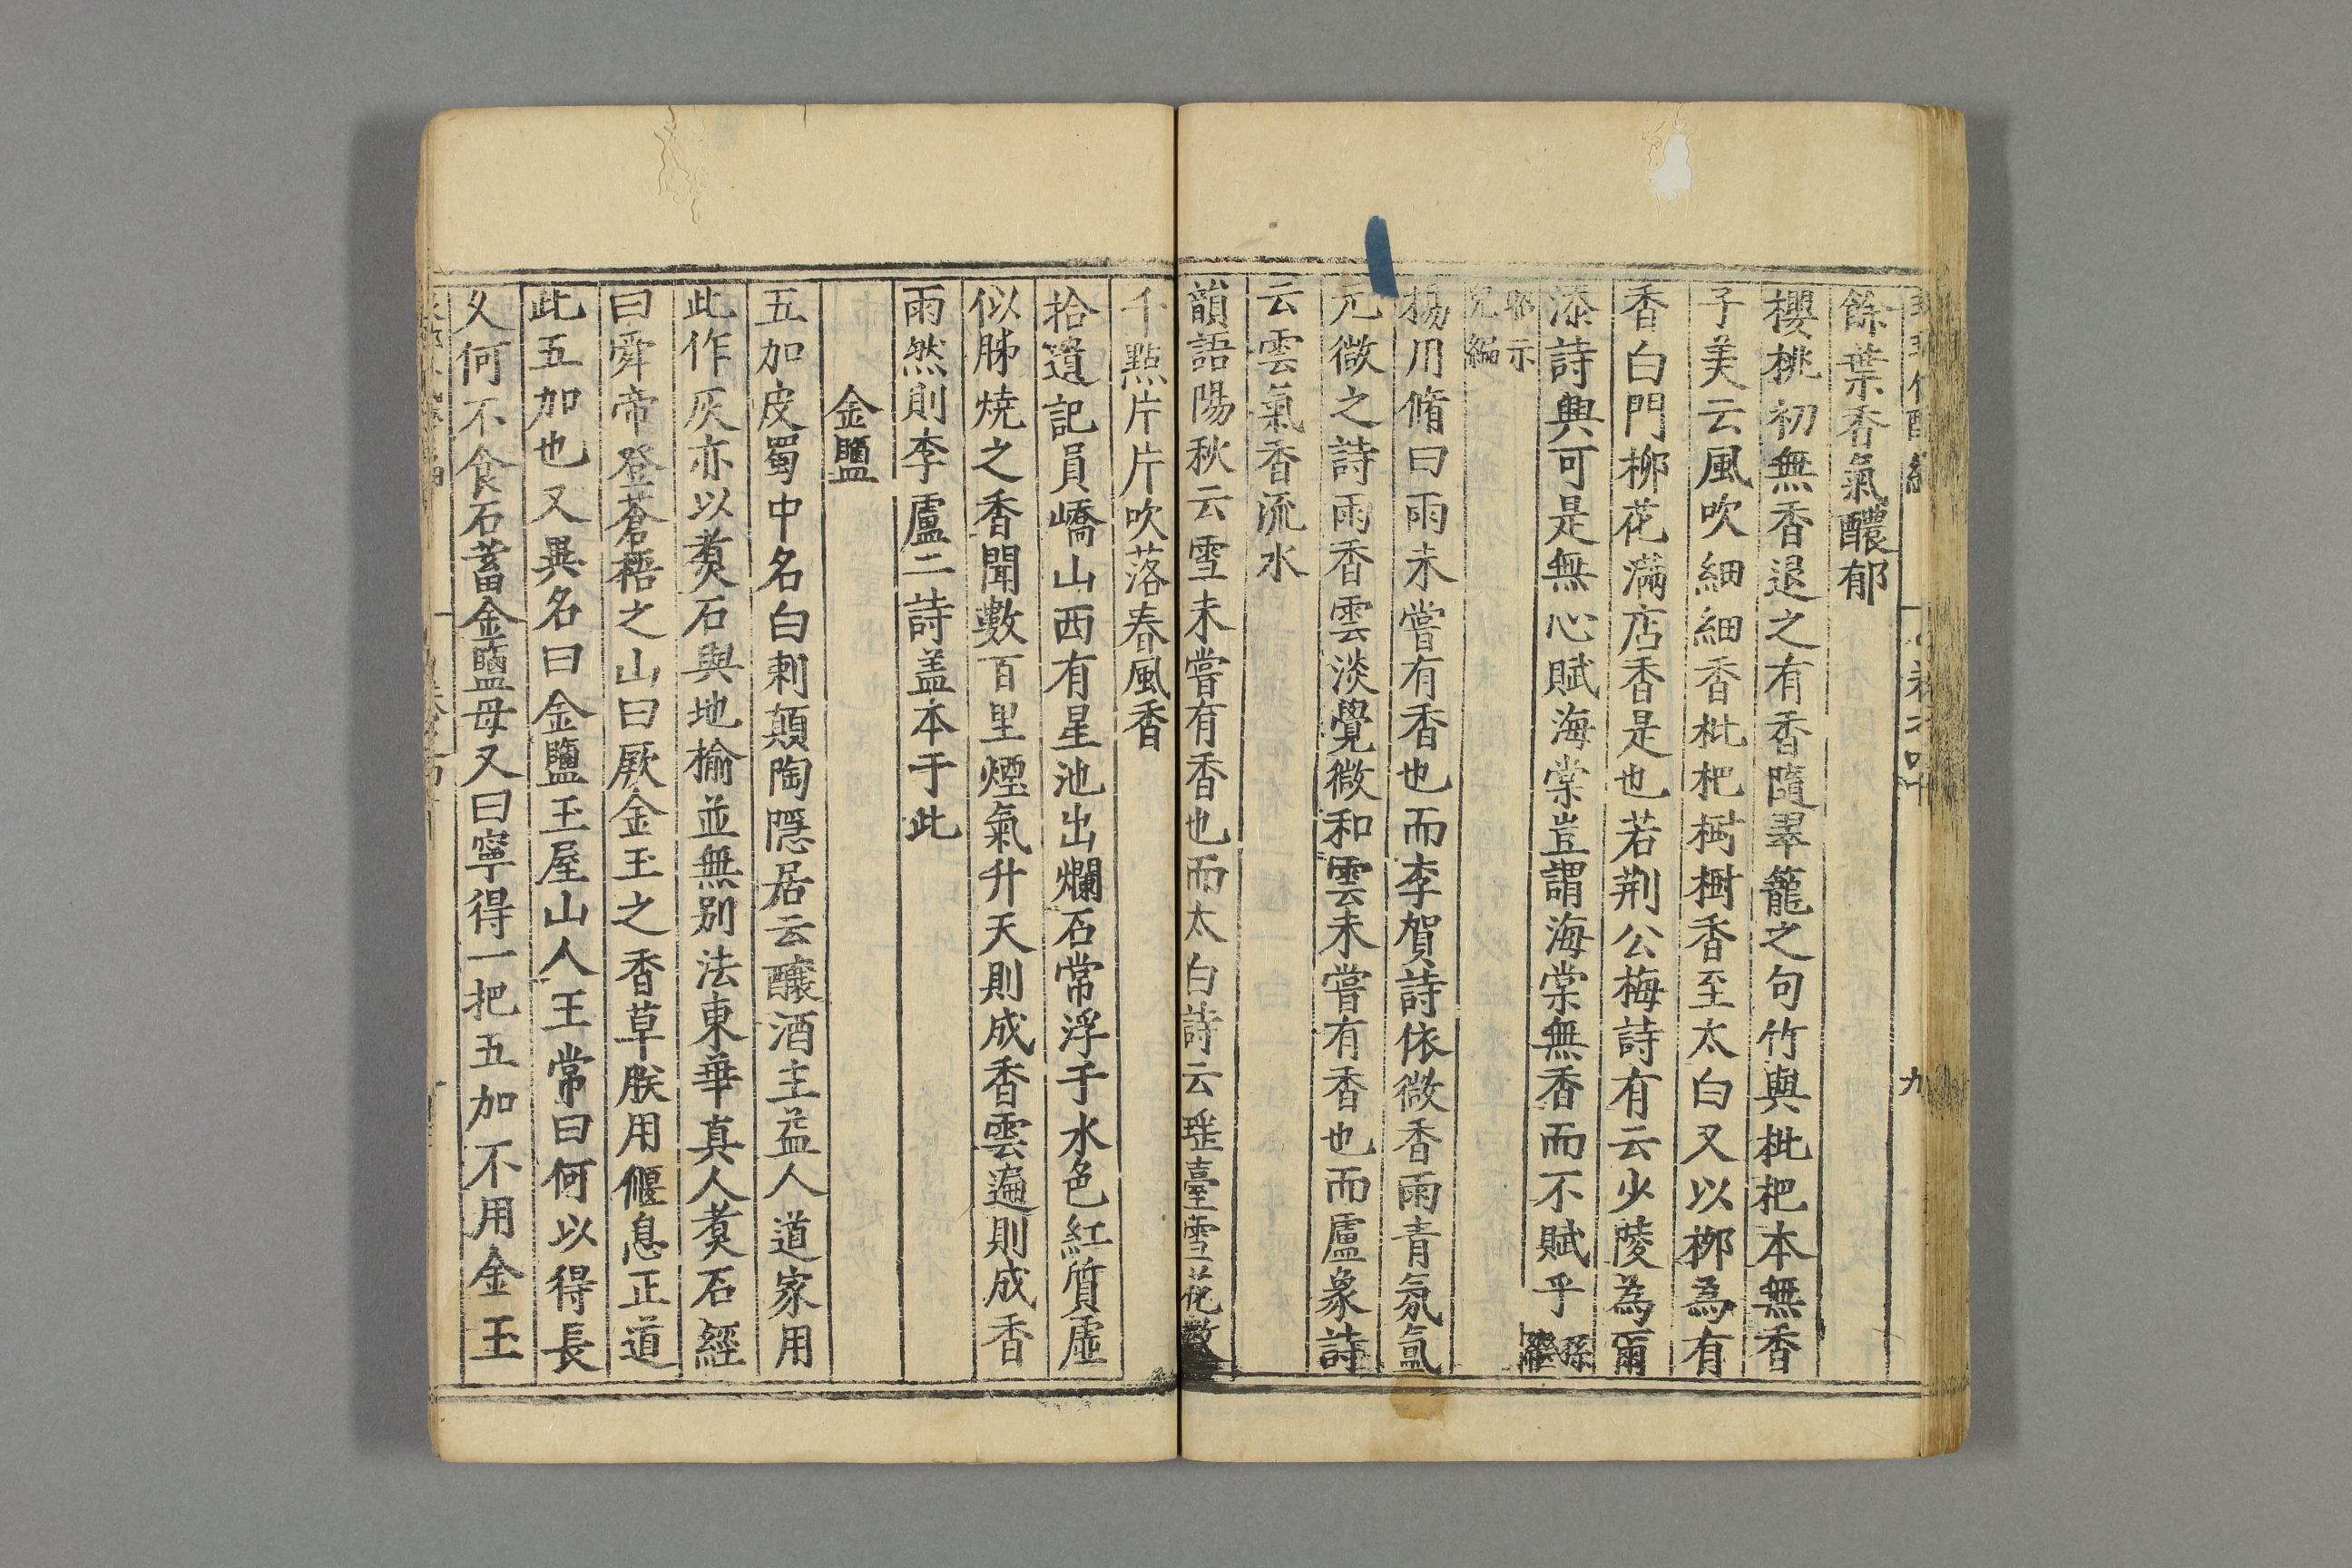 餘葉香氣醲郁
櫻桃初無香退之有香隨翠籠之句竹與枇杷本無香
子美云風吹細細香枇杷樹樹香至太白又以柳為有
香白門柳花滿店香是也若荆公梅詩有云少陵為爾
添詩興可是無心賦海棠豈謂海棠無香而不賦乎孫
示
兒編
楊用脩曰雨未嘗有香也而李賀詩依微香雨青氛氳
元微之詩雨香雲淡覺微和雲未嘗有香也而盧象詩
云雲氣香流水
韻語陽秋云雪未嘗有香也而太白詩云瑤臺雪花數
千點片片吹落春風香
拾遺記員嶠山西有星池出爛石常浮于水色紅質虛
似肺燒之香聞數百里煙氣升天則成香雲遍則成香
雨然則李盧二詩盖本于此
金鹽
五加皮蜀中名白刺顛陶隱居云釀酒主益人道家用
此作灰亦以煑石與地榆並無别法東華真人煑石經
曰舜帝登蒼梧之山曰厥金玉之香草朕用偃息正道
此五加也又異名曰金鹽玉屋山人王常曰何以得長
乆何不食石蓄金鹽母又曰寧得一把五加不用金玉